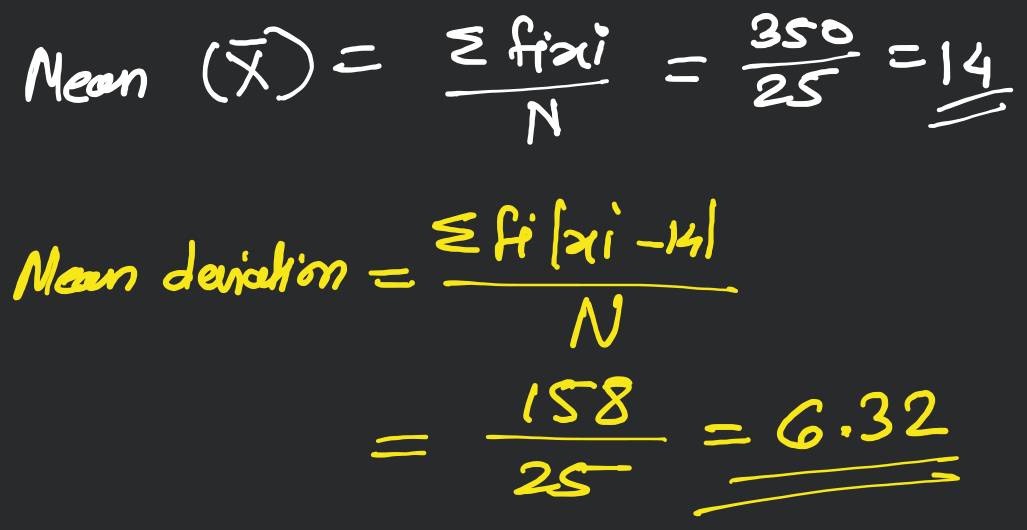 Mean (X̄) = Σ fixi / N = 350 / 25 = 14
Mean deviation = Σ fi |xi - 14| / N
= 158 / 25 = 6.32